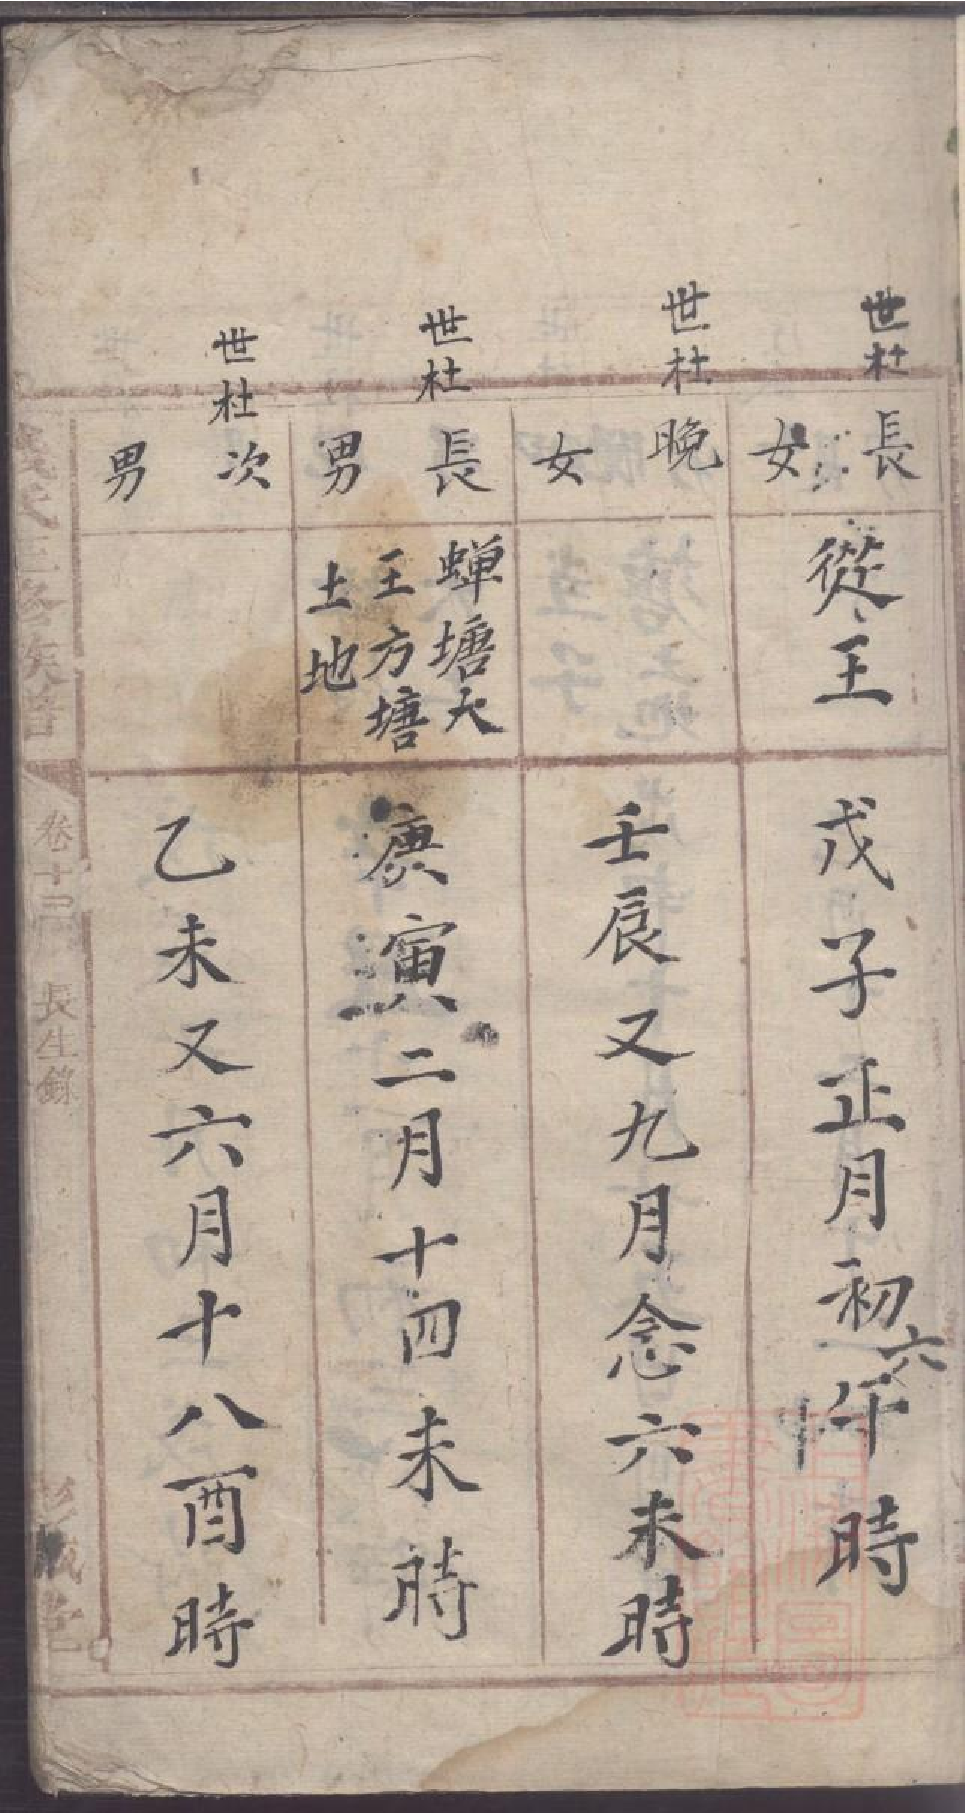 世杜
長女
從王
戊子正月初六午時
世杜
晚女
壬辰又九月念六未時
世杜
長男
蝉塘大
王方塘
土地
庚寅二月十四未時
世杜
次男
乙未又六月十八酉時
錢氏三修族譜
卷十
長生錄
彭城堂